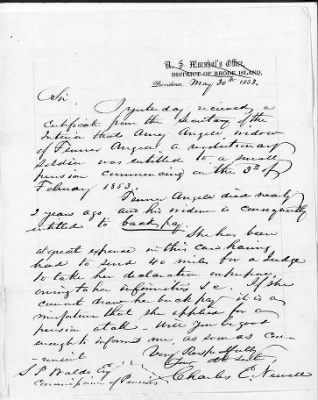 U. S. Marshal's Office,
DISTRICT OF RHODE ISLAND,
Providence, May 30th 1853.
Sir
I yesterday received a
Certificate from the Secretary of the
Interior that Amey Angell widow
of Fenner Angell a revolutionary
Soldier was entitled to a small
pension commencing on the 3d of
February 1853.
Fenner Angell died nearly
2 years ago and his widow is consequently
entitled to back pay.
She has been
at great expense in this case having
had to send 40 miles for a Judge
to take her declaration on purpose,
owing to her infirmities &c. If she
cannot draw her back pay it is a
misfortune that she applied for a
pension at all - Will you be good
enough to inform me, as soon as con-
-venient
Very Respectfully
Your Ob Servt.
Charles E. Newell
S P Waldo Esq
Commissioner of Pensions